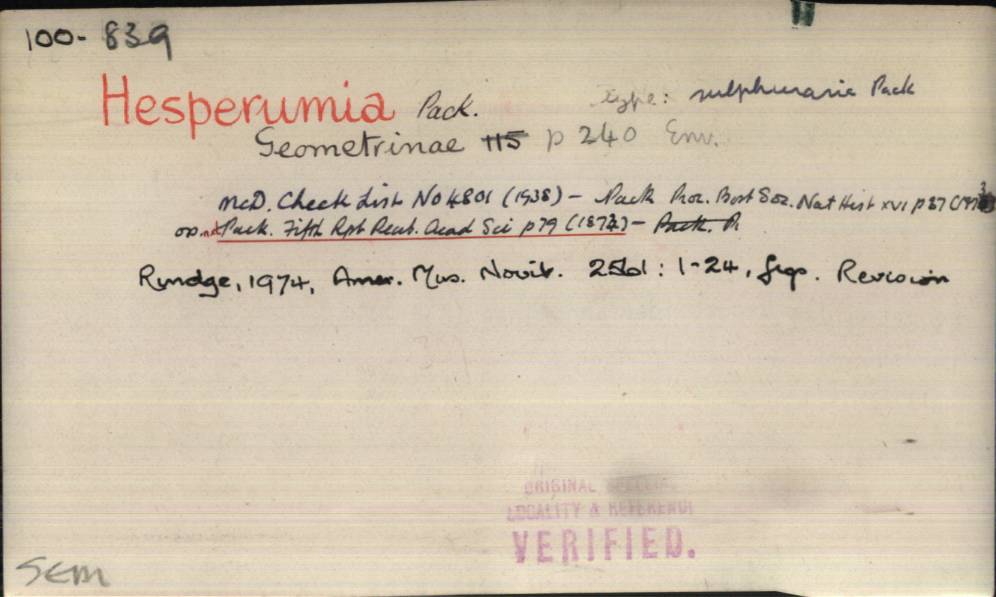 100-839
Hesperumia Pack. type: sulphuraria Pack
Geometrinae 115 p 240 Env.
McD. Check List No 4801 (1938) - Pack Proc. Bost Soc. Nat Hist xvi p 37
Pack. Fifth Rpt Peab. Acad Sci p 79 - Pack. P
Rindge, 1974, Amer. Mus. Novit. : 1-24, figs. Revision
ORIGINAL
LOCALITY & REFERENCE
VERIFIED.
SEM